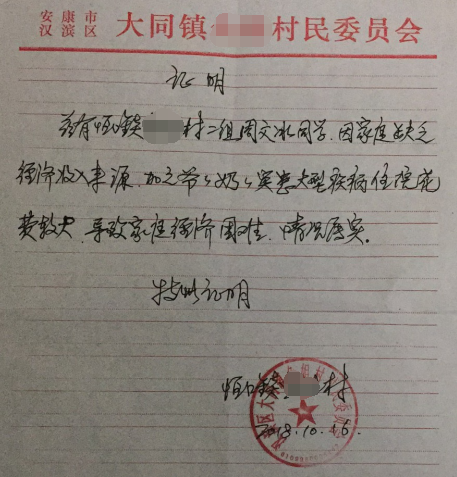 安康市汉滨区 大同镇 村民委员会
证明
兹有恒口镇 村二组周文 同学,因家庭缺乏
经济收入来源,加之爷爷奶奶突患大型疾病住院花
费较大,导致家庭经济困难,情况属实。
特此证明
恒口镇 村
2018.10.16.